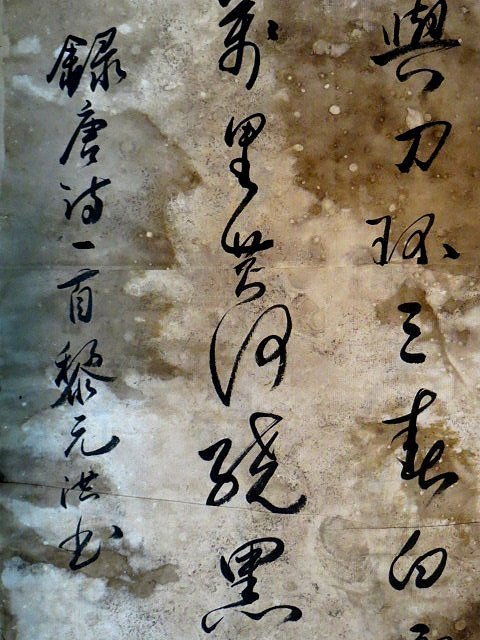 與刀環三春白
萬里黄河繞黑
錄唐詩一首黎元洪書